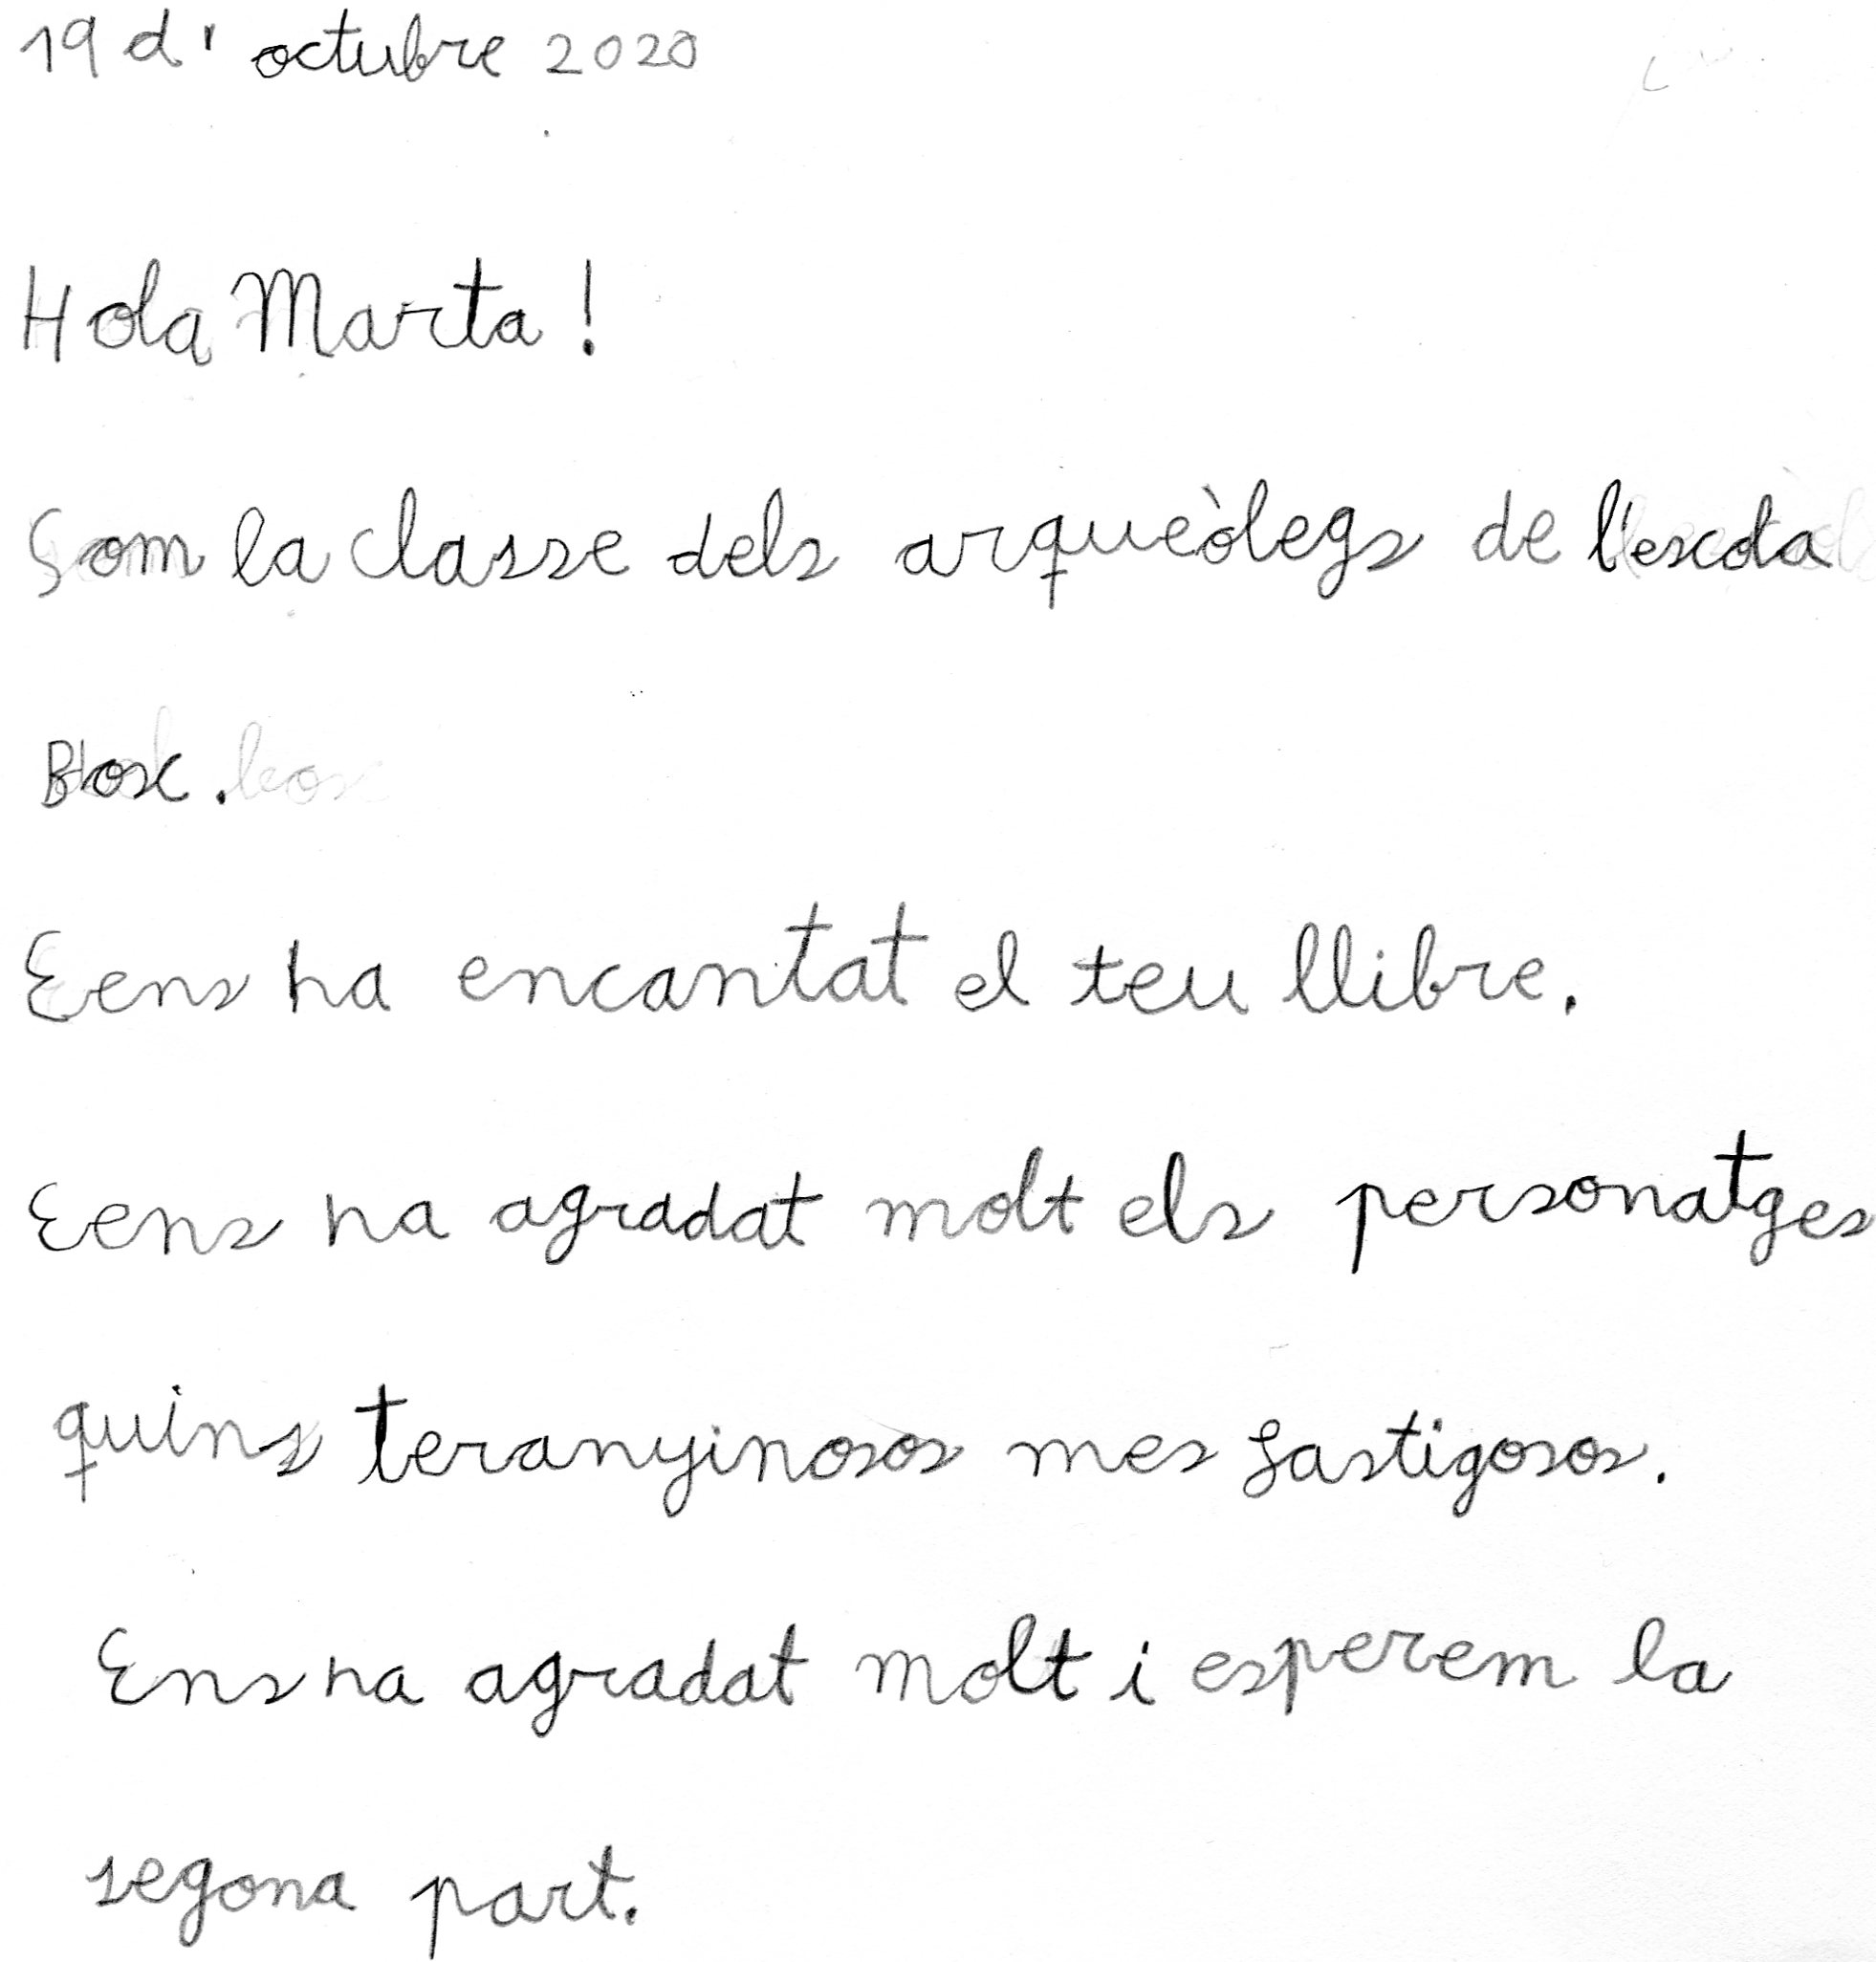 19 d' octubre 2020
Hola Marta!
Som la classe dels arqueòlegs de l'escola
Bosc.
Eens ha encantat el teu llibre.
Eens ha agradat molt els personatges
quins teranyinosos mes fastigosos.
Ens ha agradat molt i esperem la
segona part.